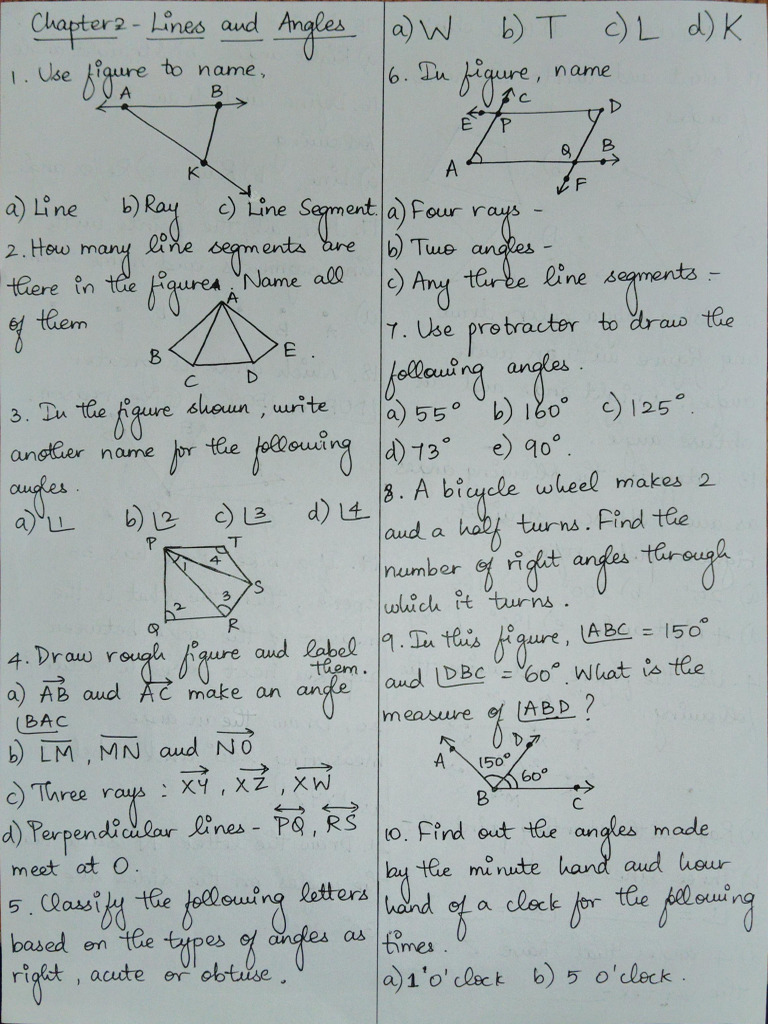 Chapter 2 - Lines and Angles
1. Use figure to name,
A B
K
a) Line b) Ray c) Line Segment.
2. How many line segments are
there in the figure. Name all
of them
A
B E.
C D
3. In the figure shown, write
another name for the following
angles.
a) ∠1 b) ∠2 c) ∠3 d) ∠4
P T
1 4
S
2 3
Q R
4. Draw rough figure and label
them.
a) \overrightarrow{AB} and \overrightarrow{AC} make an angle
∠BAC
b) \overline{LM}, \overline{MN} and \overrightarrow{NO}
c) Three rays : \overrightarrow{XY}, \overrightarrow{XZ}, \overrightarrow{XW}
d) Perpendicular lines - \overleftrightarrow{PQ}, \overleftrightarrow{RS}
meet at O.
5. Classify the following letters
based on the types of angles as
right, acute or obtuse.
a) W b) T c) L d) K
6. In figure, name
C
E P D
A Q B
F
a) Four rays -
b) Two angles -
c) Any three line segments -
7. Use protractor to draw the
following angles.
a) 55° b) 160° c) 125°.
d) 73° e) 90°.
8. A bicycle wheel makes 2
and a half turns. Find the
number of right angles through
which it turns.
9. In this figure, ∠ABC = 150°
and ∠DBC = 60°. What is the
measure of ∠ABD?
A D
150° 60°
B C
10. Find out the angles made
by the minute hand and hour
hand of a clock for the following
times.
a) 1'O'clock b) 5 O'clock.